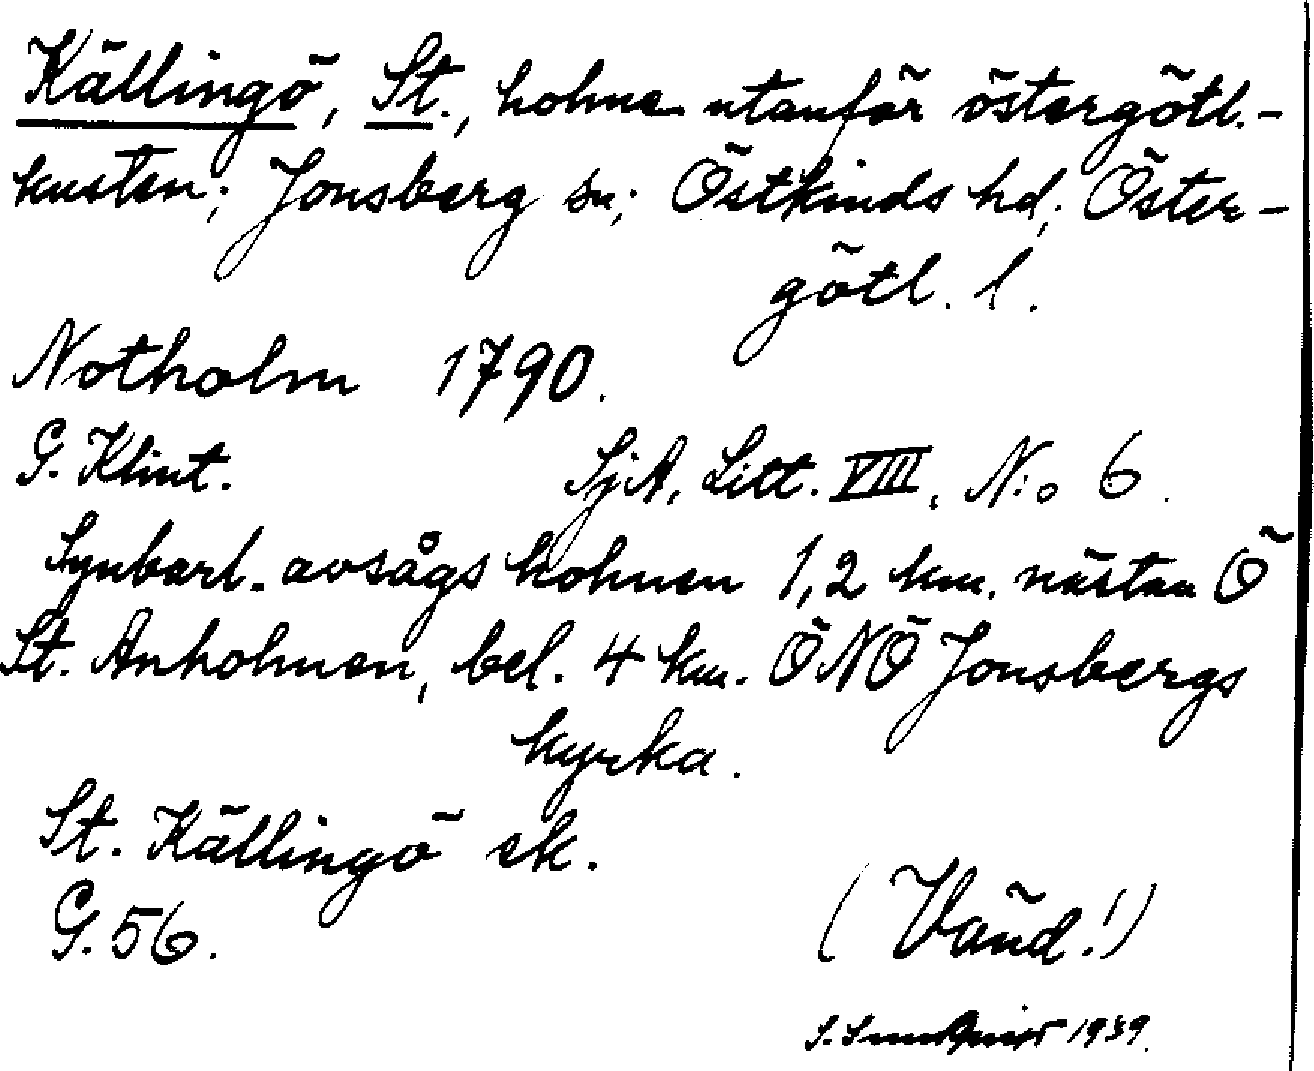 Källingö, St., holme utanför östergötl.-
kusten; Jonsberg sn; Östkinds hd; Öster-
götl. l.
Notholm 1790.
G. Klint. SjA, Litt. VIII, N:o 6.
Synbarl. avsågs holmen 1,2 km. nästan Ö
St. Anholmen, bel. 4 km. ÖNÖ Jonsbergs
kyrka.
St. Källingö ek.
G. 56. (Vänd!)
S. Sundqvist 1939.